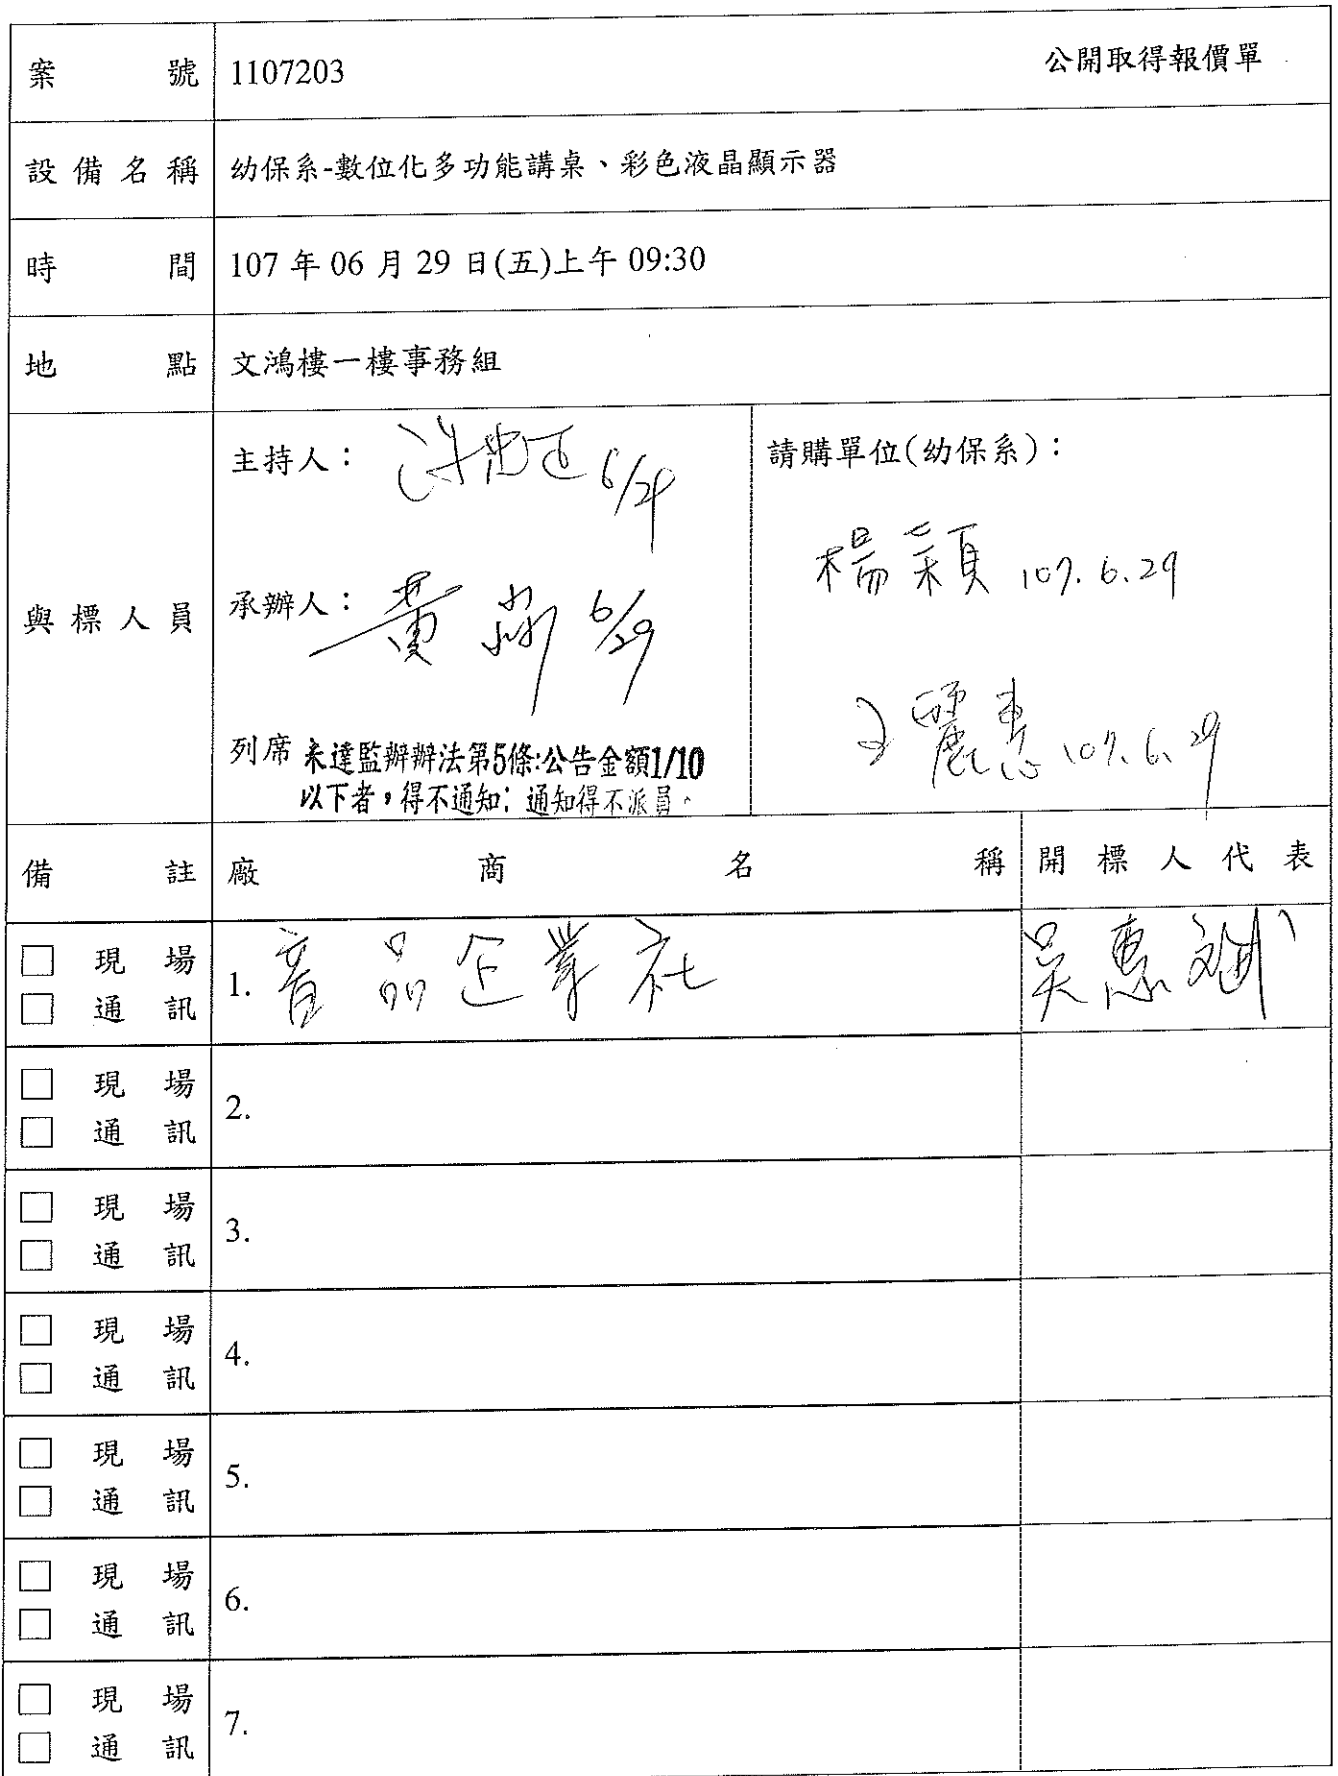 案號 1107203 公開取得報價單
設備名稱 幼保系-數位化多功能講桌、彩色液晶顯示器
時間 107 年 06 月 29 日(五)上午 09:30
地點 文鴻樓一樓事務組
與標人員
主持人： 6/29
承辦人： 黃 6/29
列席 未達監辦辦法第5條:公告金額1/10
以下者，得不通知; 通知得不派員。
請購單位(幼保系)：
楊穎 107.6.29
王麗惠 107.6.29
備註 廠商名稱 開標人代表
□ 現場
□ 通訊
1. 音品企業社 吳惠斌
□ 現場
□ 通訊
2.
□ 現場
□ 通訊
3.
□ 現場
□ 通訊
4.
□ 現場
□ 通訊
5.
□ 現場
□ 通訊
6.
□ 現場
□ 通訊
7.